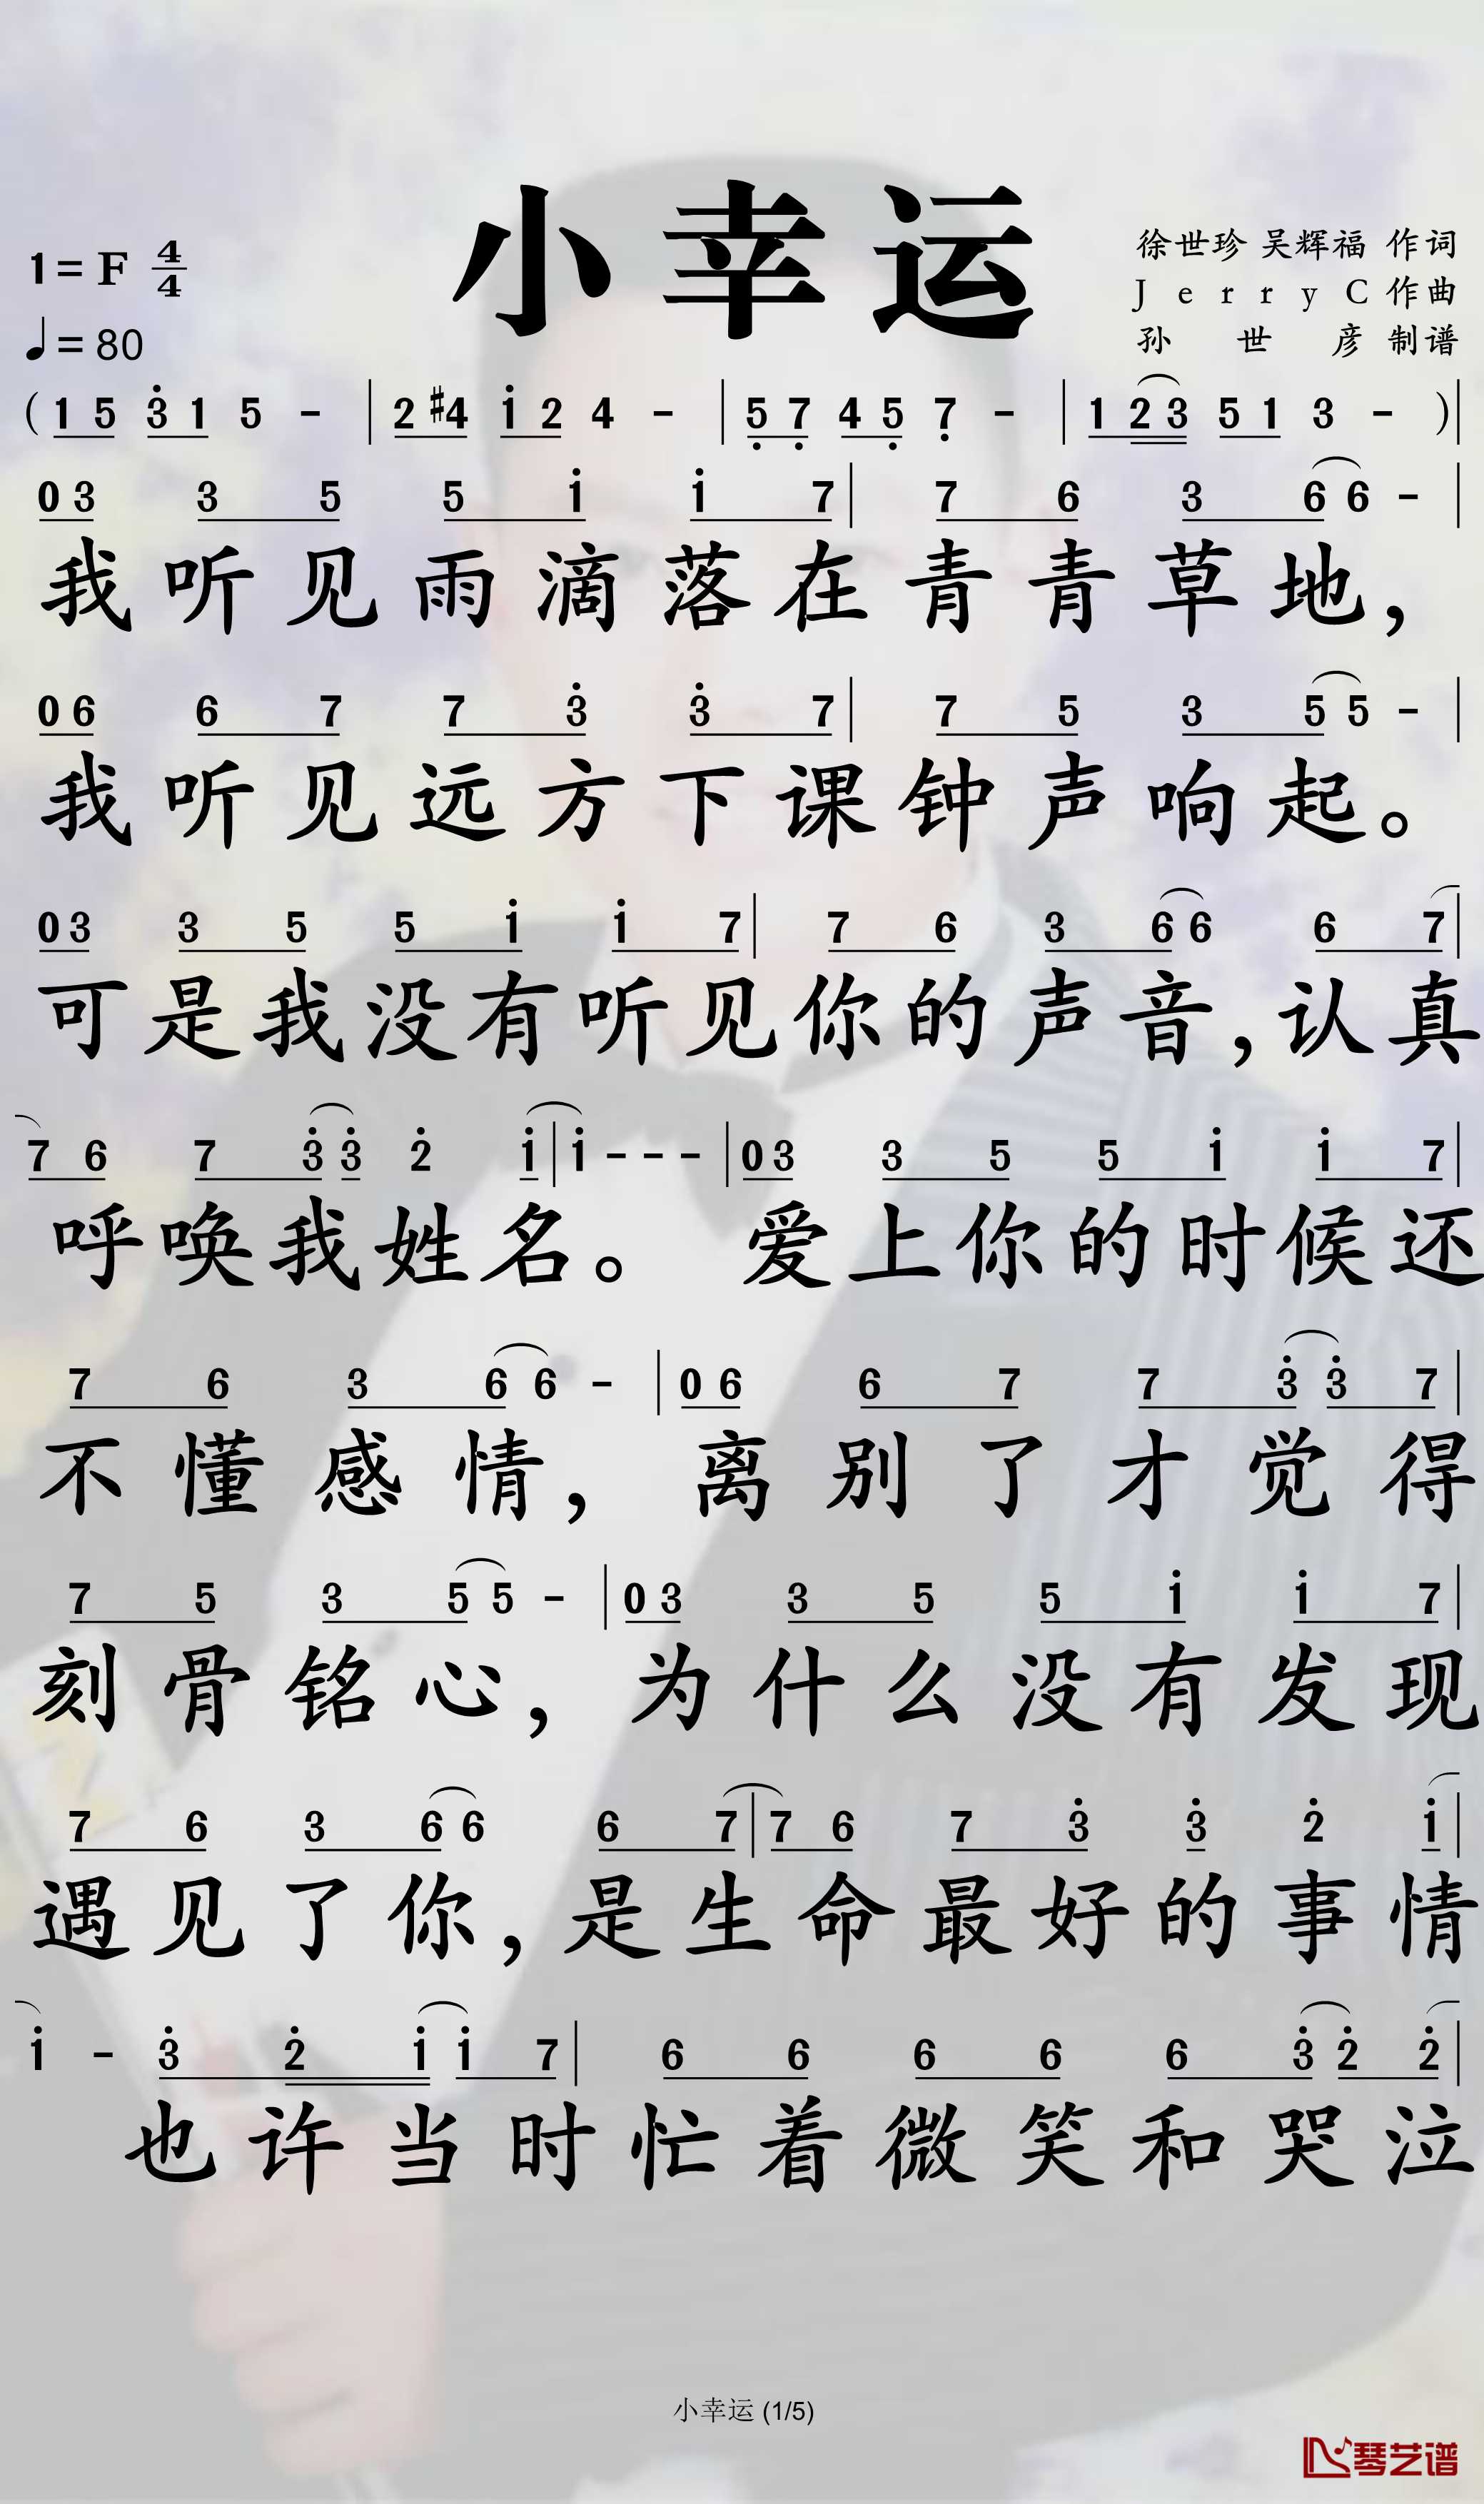 小幸运
1=F 4/4
♩=80
徐世珍 吴辉福 作词
JerryC 作曲
孙世彦 制谱
( 1 5 3̇ 1 5 - | 2 #4 1̇ 2 4 - | 5̣ 7̣ 4 5̣ 7̣ - | 1 2 3 5 1 3 - ) |
0 3 3 5 5 1̇ 1̇ 7 | 7 6 3 6 6 - |
我听见雨滴落在青青草地，
0 6 6 7 7 3̇ 3̇ 7 | 7 5 3 5 5 - |
我听见远方下课钟声响起。
0 3 3 5 5 1̇ 1̇ 7 | 7 6 3 6 6 6 7 |
可是我没有听见你的声音，认真
7 6 7 3̇ 3̇ 2̇ 1̇ | 1̇ - - - | 0 3 3 5 5 1̇ 1̇ 7 |
呼唤我姓名。 爱上你的时候还
7 6 3 6 6 - | 0 6 6 7 7 3̇ 3̇ 7 |
不懂感情，离别了才觉得
7 5 3 5 5 - | 0 3 3 5 5 1̇ 1̇ 7 |
刻骨铭心，为什么没有发现
7 6 3 6 6 6 7 | 7 6 7 3̇ 3̇ 2̇ 1̇ |
遇见了你，是生命最好的事情
1̇ - 3̇ 2̇ 1̇ 1̇ 7 | 6 6 6 6 6 3̇ 2̇ 2̇ |
也许当时忙着微笑和哭泣
小幸运 (1/5)
琴艺谱